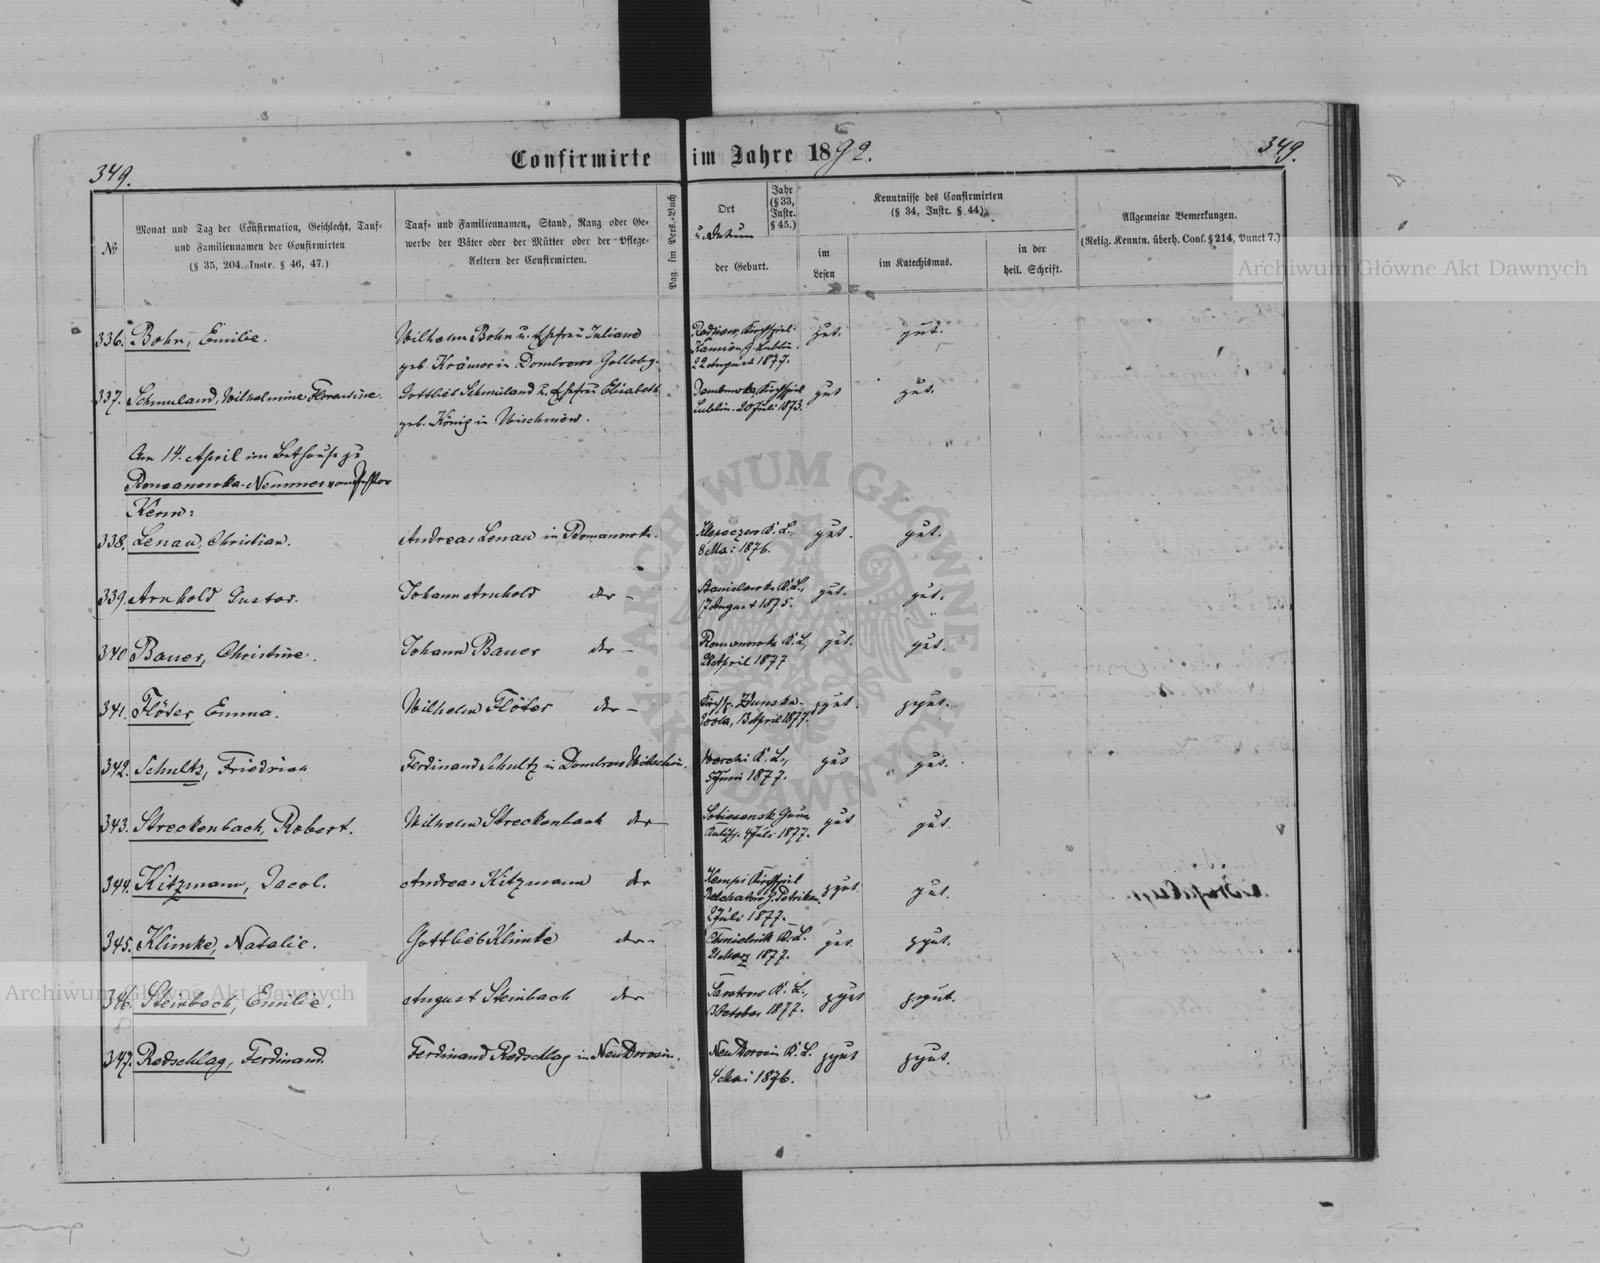 349.
Confirmirte im Jahre 1892.
349.
№
Monat und Tag der Confirmation, Geschlecht, Tauf-
und Familiennamen der Confirmirten
(§ 35, 204. Instr. § 46, 47.)
Tauf- und Familiennamen, Stand, Rang oder Ge-
werbe der Väter oder der Mütter oder der Pflege-
Aeltern der Confirmirten.
Pag. im Pers.-Buch
Ort
u. Datum
der Geburt.
Jahr
(§ 33,
Instr.
§ 45.)
Kenntnisse des Confirmirten
(§ 34, Instr. § 44)
im
Lesen
im Katechismus.
in der
heil. Schrift.
Allgemeine Bemerkungen.
(Relig. Kenntn. überh. Conf. § 214, Punct 7.)
336. Bohn, Emilie.
Wilhelm Bohn u. Ehefrau Juliane
geb. Krämer in Dombrowa Gollobg.
Kirchspiel
Kamien, G. Lublin.
22 August 1877.
gut.
gut.
337. Schmuland, Wilhelmine Florentine.
Gottlieb Schmuland u. Ehefrau Elisabeth
geb. König in Wischniow.
Kirchspiel
Lublin. 20 Juli 1873.
gut
gut.
Am 14. April im Bethause zu
Romanowka-Nemmer vom Pastor
Kerm:
338. Lenau, Christian.
Andreas Lenau in Romanowka.
K. L.,
8 Mai 1876.
gut.
gut.
339. Arnhold Gustav.
Johann Arnhold der –
Stanislawka K. L.,
17 August 1875.
gut.
gut.
340 Bauer, Christine.
Johann Bauer der –
Romanowka K. L.,
28 April 1877
gut.
gut.
341. Flöter Emma.
Wilhelm Flöter der –
Kirchsp. Zdunska-
Wola, 13 April 1877.
gut.
gut.
342. Schultz, Friedrich
Ferdinand Schultz in Dombrowa
K. L.,
5 Juni 1877.
gut
gut.
343. Streckenbach, Robert.
Wilhelm Streckenbach der –
Gmin
4 Juli 1877.
gut
gut.
344. Kitzmann, Jacob.
Andreas Kitzmann der
Kempi Kirchspiel
Belchatow G. Petrikau.
2 Juli 1877.
gut
gut.
345. Klimke, Natalie.
Gottlieb Klimke der –
Chmielnik K. L.
21 März 1877.
gut.
gut.
346. Steinbach, Emilie.
August Steinbach der
K. L.,
October 1877.
gut
gut.
347. Redschlag, Ferdinand
Ferdinand Redschlag in Neu Dorosin.
Neu Dorosin K. L.
4 Mai 1876.
gut
gut.
Archiwum Główne Akt Dawnych
Archiwum Główne Akt Dawnych
ARCHIWUM GŁÓWNE AKT DAWNYCH